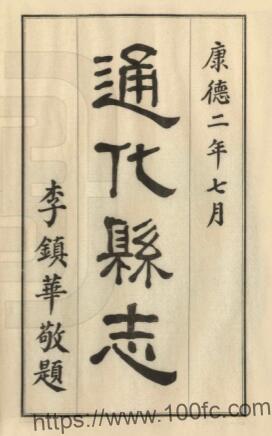 康德二年七月
通化縣志
李鎮華敬題
https://www.100fc.com